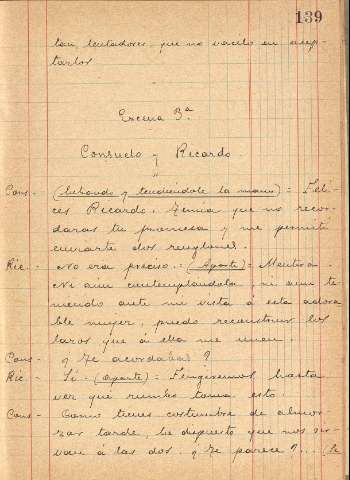 139
tan tentadores, que no vacilo en acep-
tarlos.
Escena 3ª
Consuelo y Ricardo.
Cons - (Entrando y tendiendole la mano) = Feli-
ces Ricardo. Temia que no recor-
daras tu promesa y me permití
enviarte dos renglones.
Ric. - No era preciso. = (Aparte) = Mentira.
Ni aun contemplandola, ni aun te-
niendo ante mi vista á esta adora-
ble mujer, puedo reconstruir los
lazos que á ella me unen.
Cons - ¿Te acordabas?
Ric - Si - (aparte) = Fingiremos hasta
ver que rumbo toma esto.
Cons - Como tienes costumbre de almor-
zar tarde, he dispuesto que nos sir-
van á las dos. ¿Te parece?...